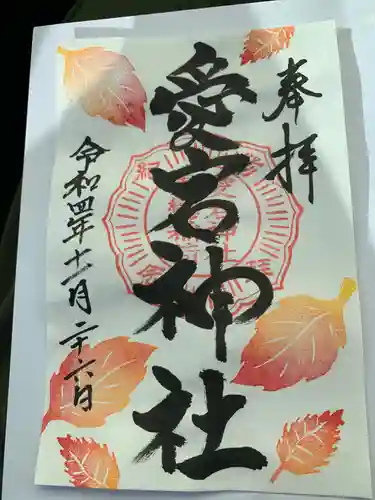 奉拝
愛宕神社
令和四年十一月二十六日